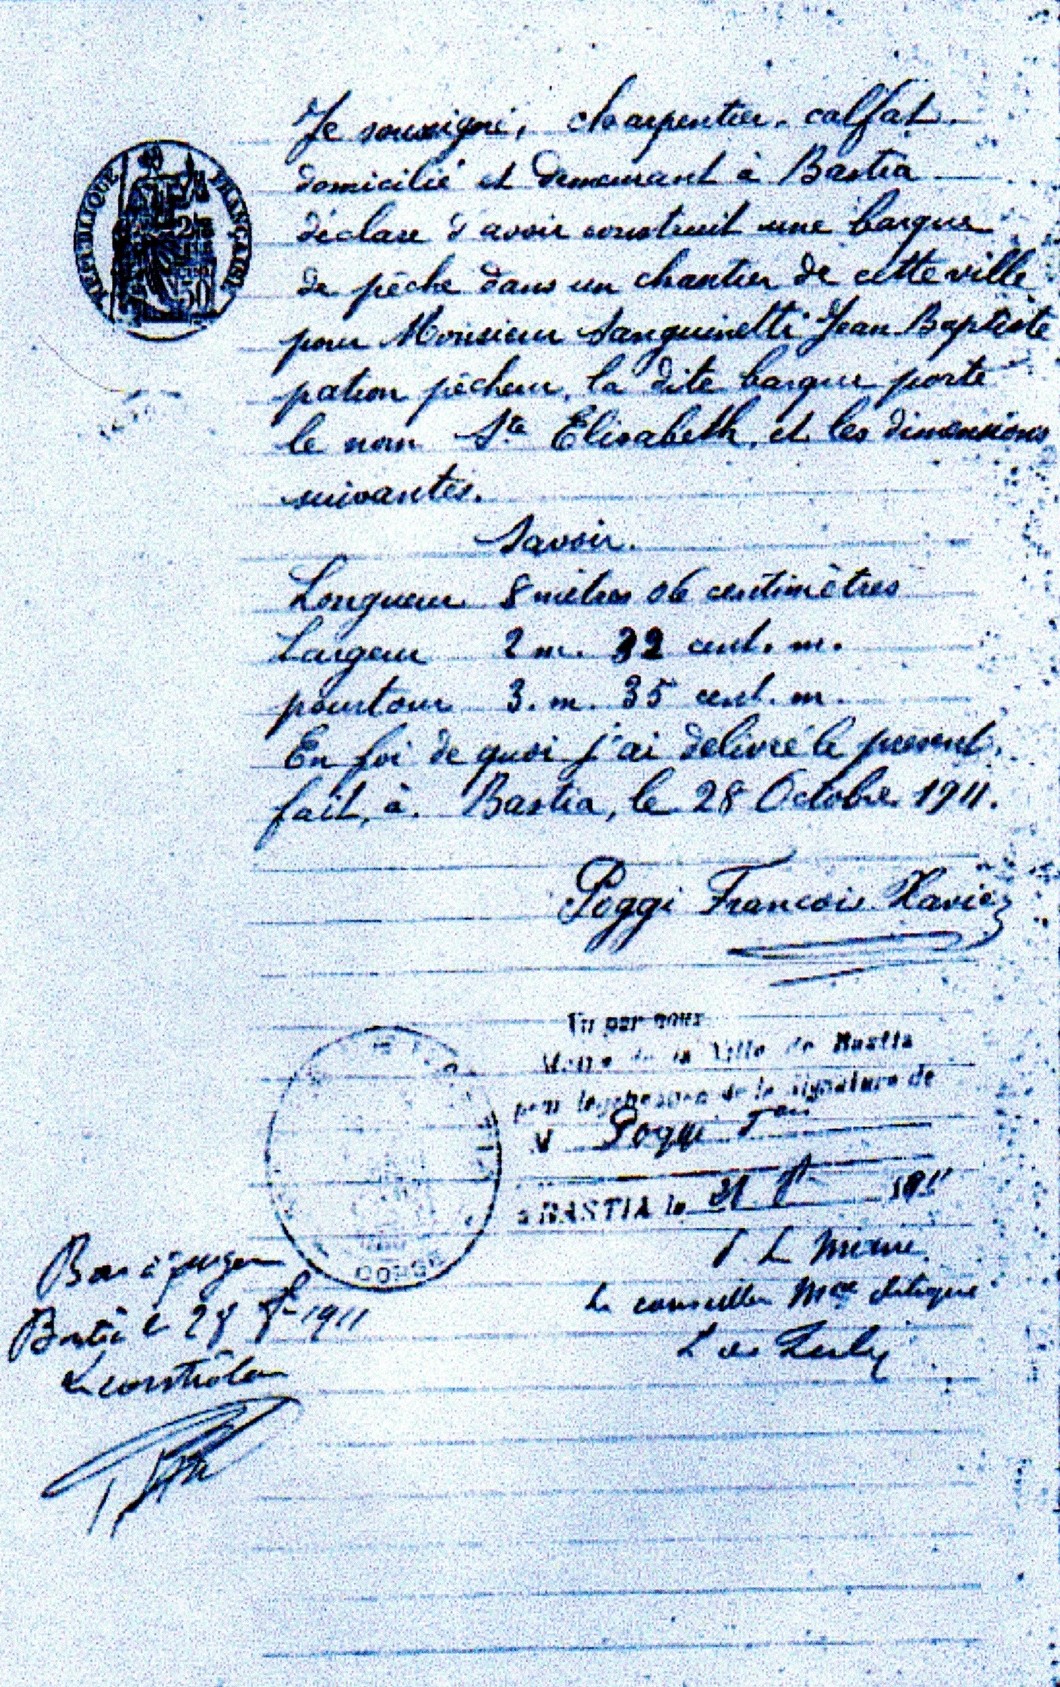 RÉPUBLIQUE FRANÇAISE
50
Je soussigné, charpentier, calfat.
domicilié et demeurant à Bastia
déclare d'avoir construit une barque
de pêche dans un chantier de cette ville
pour Monsieur Sanguinetti Jean Baptiste
patron pêcheur, la dite barque porte
le nom Ste Elisabeth, et les dimensions
suivantes.
Savoir.
Longueur 8 mètres 06 centimètres
Largeur 2 m. 32 cent. m.
pourtour 3. m. 35 cent. m.
En foi de quoi j'ai delivré le present.
fait, à. Bastia, le 28 Octobre 1911.
Poggi Francois Xavier
Vu par nous
Maire de la Ville de Bastia
pour légalisation de la signature de
Poggi
à BASTIA le 31 1911
Le Maire
Le conseiller délégué
CORSE
Bastia le 28 1911
Le contrôleur